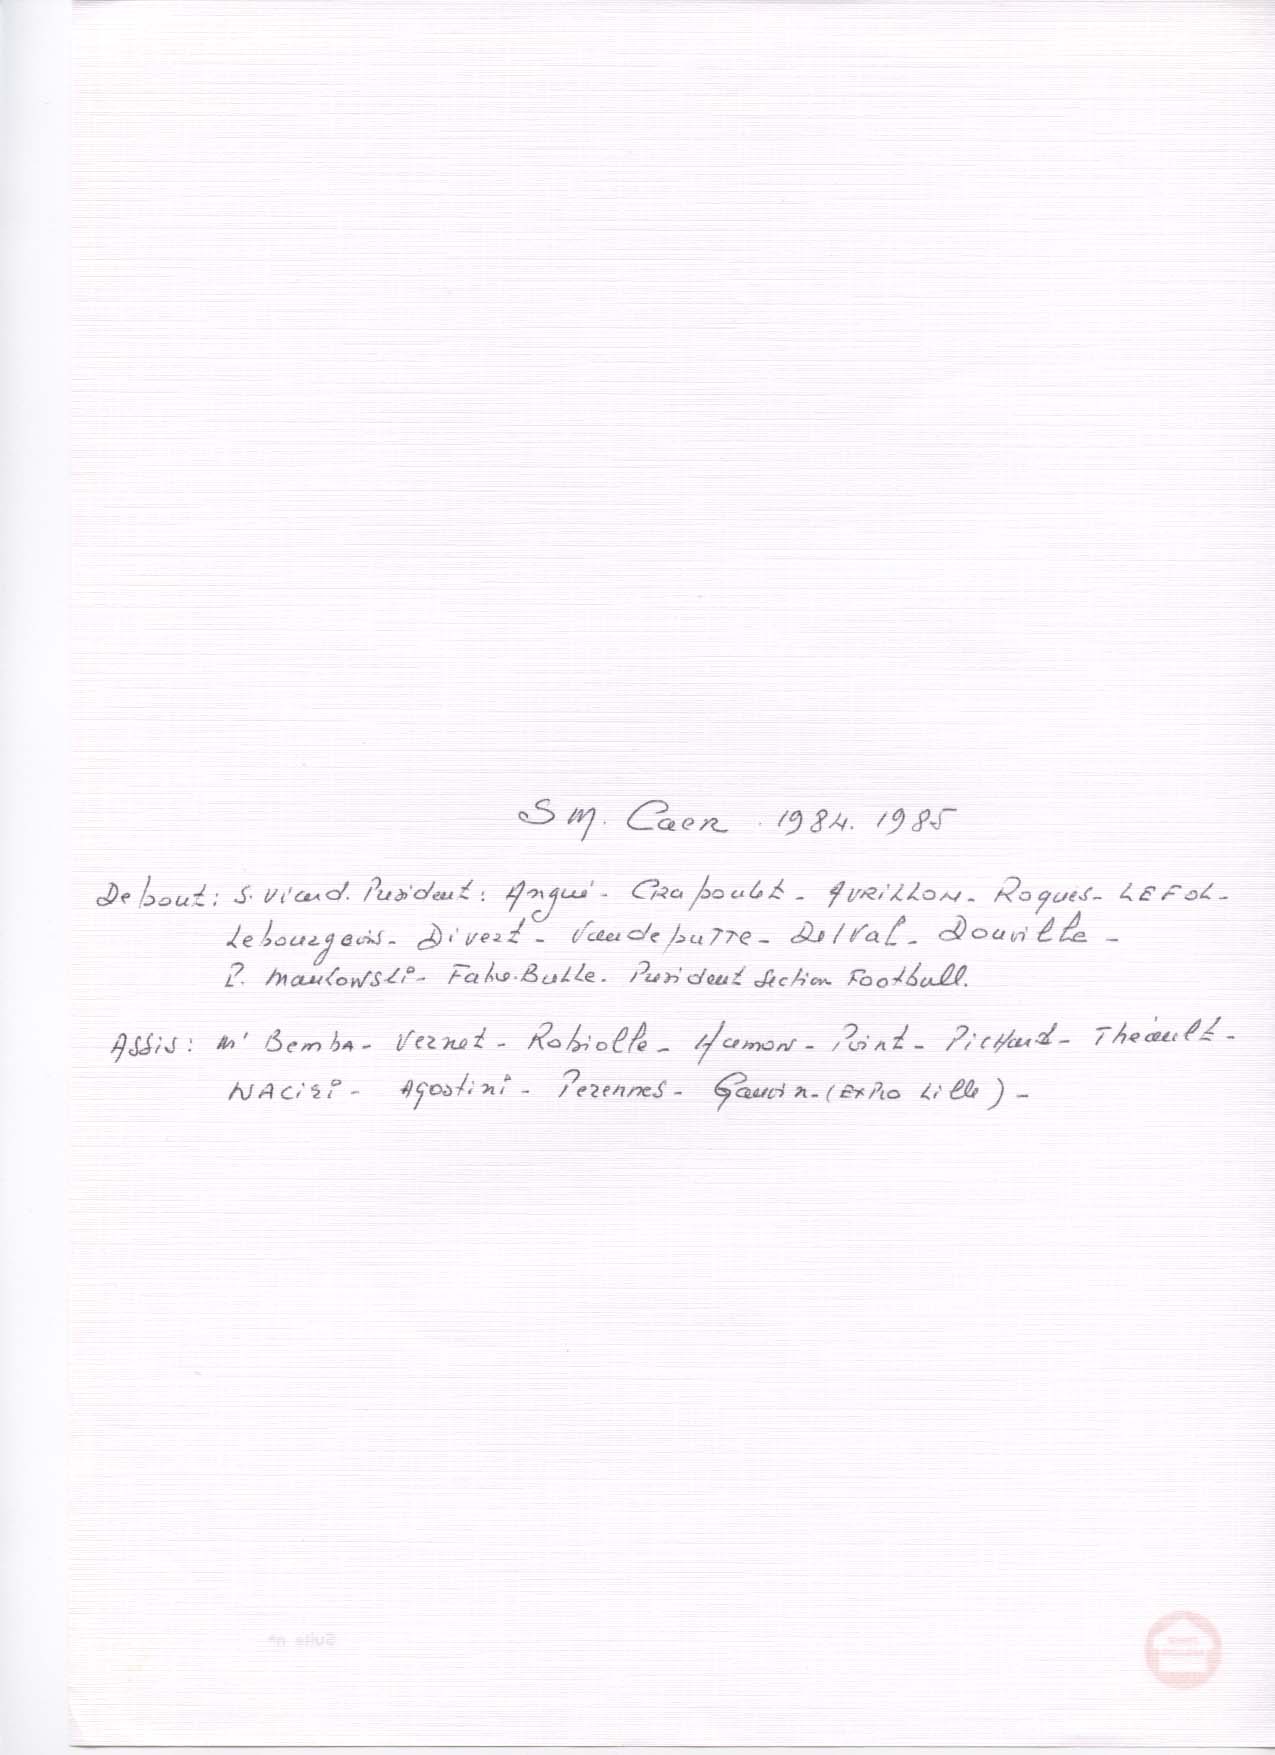 S M. Caen. 1984. 1985
Debout: S. Vicard. Président: Angué - Crapoulet - AVRILLON - Roques - LEFOL -
Lebourgeois - Divert - VandepuTTe - DelVal - Douville -
P. Mankowski - Fabre.Bulle. Président Section Football.
Assis: M' Bemba - Vernet - Robiolle - Hamon - Point - PicHard - Théault -
NACiri - Agostini - Perennes - Gauvin - (EXPRO Lille) -
Suite n°